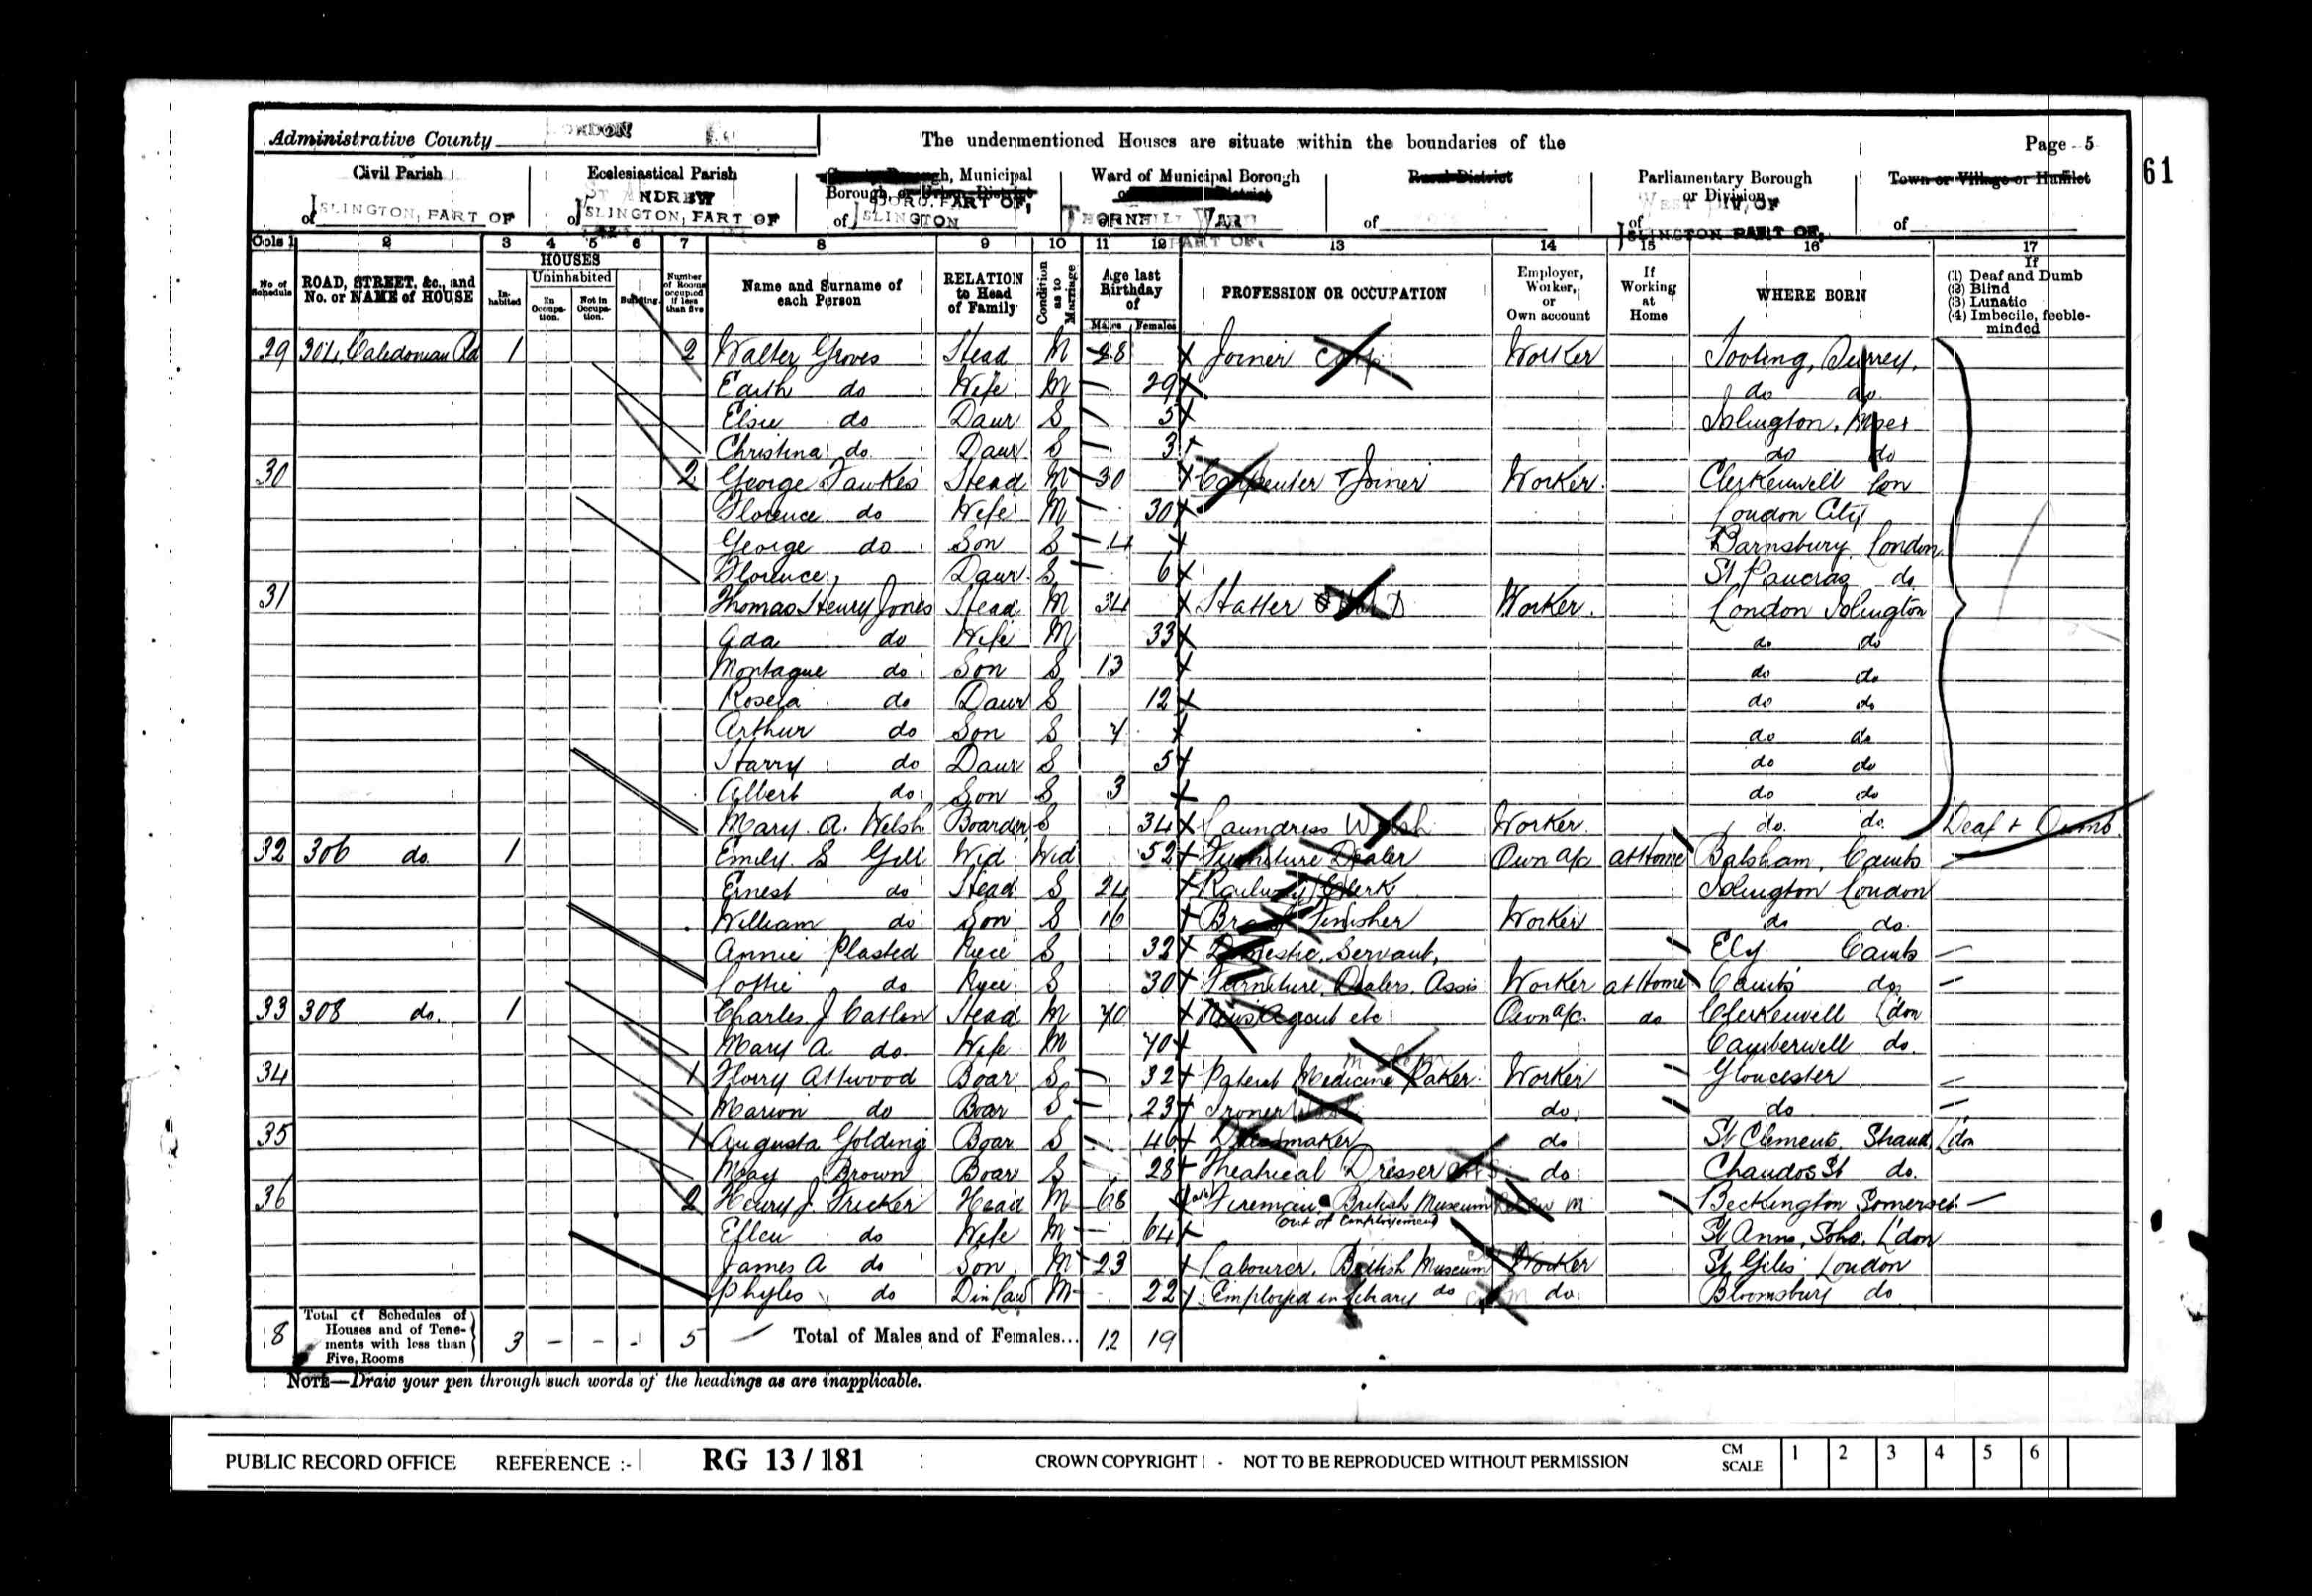 Administrative County LONDON
The undermentioned Houses are situate within the boundaries of the
Page 5
61
Civil Parish
of ISLINGTON, PART OF
Ecclesiastical Parish
of ST ANDREW
ISLINGTON, PART OF
County Borough, Municipal
Borough, or Urban District
of BORO. PART OF,
ISLINGTON
Ward of Municipal Borough
or Urban District
of THORNHILL WARD
PART OF,
Rural District
of
Parliamentary Borough
or Division
of WEST DIV. OF
ISLINGTON PART OF,
Town or Village or Hamlet
of
Cols 1 2 3 4 5 6 7 8 9 10 11 12 13 14 15 16 17
No. of Schedule
ROAD, STREET, &c., and No. or NAME of HOUSE
HOUSES
Inhabited
Uninhabited
In Occupation.
Not in Occupation.
Building.
Number of Rooms occupied if less than five
Name and Surname of each Person
RELATION to Head of Family
Condition as to Marriage
Age last Birthday of
Males Females
PROFESSION OR OCCUPATION
Employer, Worker, or Own account
If Working at Home
WHERE BORN
If
(1) Deaf and Dumb
(2) Blind
(3) Lunatic
(4) Imbecile, feeble-minded
29 304, Caledonian Rd 1 2 Walter Groves Head M 28 Joiner Worker Tooting, Surrey.
Edith do Wife M 29 do do
Elsie do Daur S 5 Islington, Msex
Christina do Daur S 3 do do
30 2 George Fawkes Head M 30 Carpenter & Joiner Worker Clerkenwell Lon
Florence do Wife M 30 London City
George do Son S 4 Barnsbury, London
Florence, Daur S 6 St Pancras do
31 Thomas Henry Jones Head M 34 Hatter Worker London Islington
Ada do Wife M 33 do do
Montague do Son S 13 do do
do Daur S 12 do do
Arthur do Son S do do
Harry do Daur S 5 do do
Albert do Son S 3 do do
Mary. A. Welsh Boarder S 34 Laundress Wash Worker do do Deaf & Dumb.
32 306 do. 1 Emily S Gell Wid Wid 52 Furniture Dealer Own a/c at Home Balsham, Cambs
Ernest do Head S 24 Railway Clerk Islington London
William do Son S 16 Brass Finisher Worker do do.
Annie Plasted Niece S 32 Domestic Servant, Ely Cambs
Lottie do Nice S 30 Furniture Dealers Assis Worker at Home Cambs do
33 308 do. 1 Charles J Catlin Head M 40 News Agent etc Own a/c. do Clerkenwell L'don
Mary A do. Wife M 40 Camberwell do.
34 1 Attwood Boar S 32 Patent Medicine Worker Gloucester
Marion do Boar S 23 Ironer do do
35 1 Augusta Golding Boar S 46 Dressmaker do St Clements, Strand L'don
May Brown Boar S 28 Theatrical Dresser do Chandos St do.
36 2 Henry J. Fricker Head M 68 Fireman British Museum Beckington Somerset
out of Employement
Ellen do Wife M 64 St Anns, Soho, L'don
James A do Son M 23 Labourer, British Museum Worker St Giles London
Phyles do D in Law M 22 Employed in library do do Bloomsbury do
8 Total of Schedules of Houses and of Tenements with less than Five Rooms 3 - - - 5 Total of Males and of Females... 12 19
NOTE—Draw your pen through such words of the headings as are inapplicable.
PUBLIC RECORD OFFICE REFERENCE :- RG 13 / 181 CROWN COPYRIGHT - NOT TO BE REPRODUCED WITHOUT PERMISSION CM SCALE 1 2 3 4 5 6